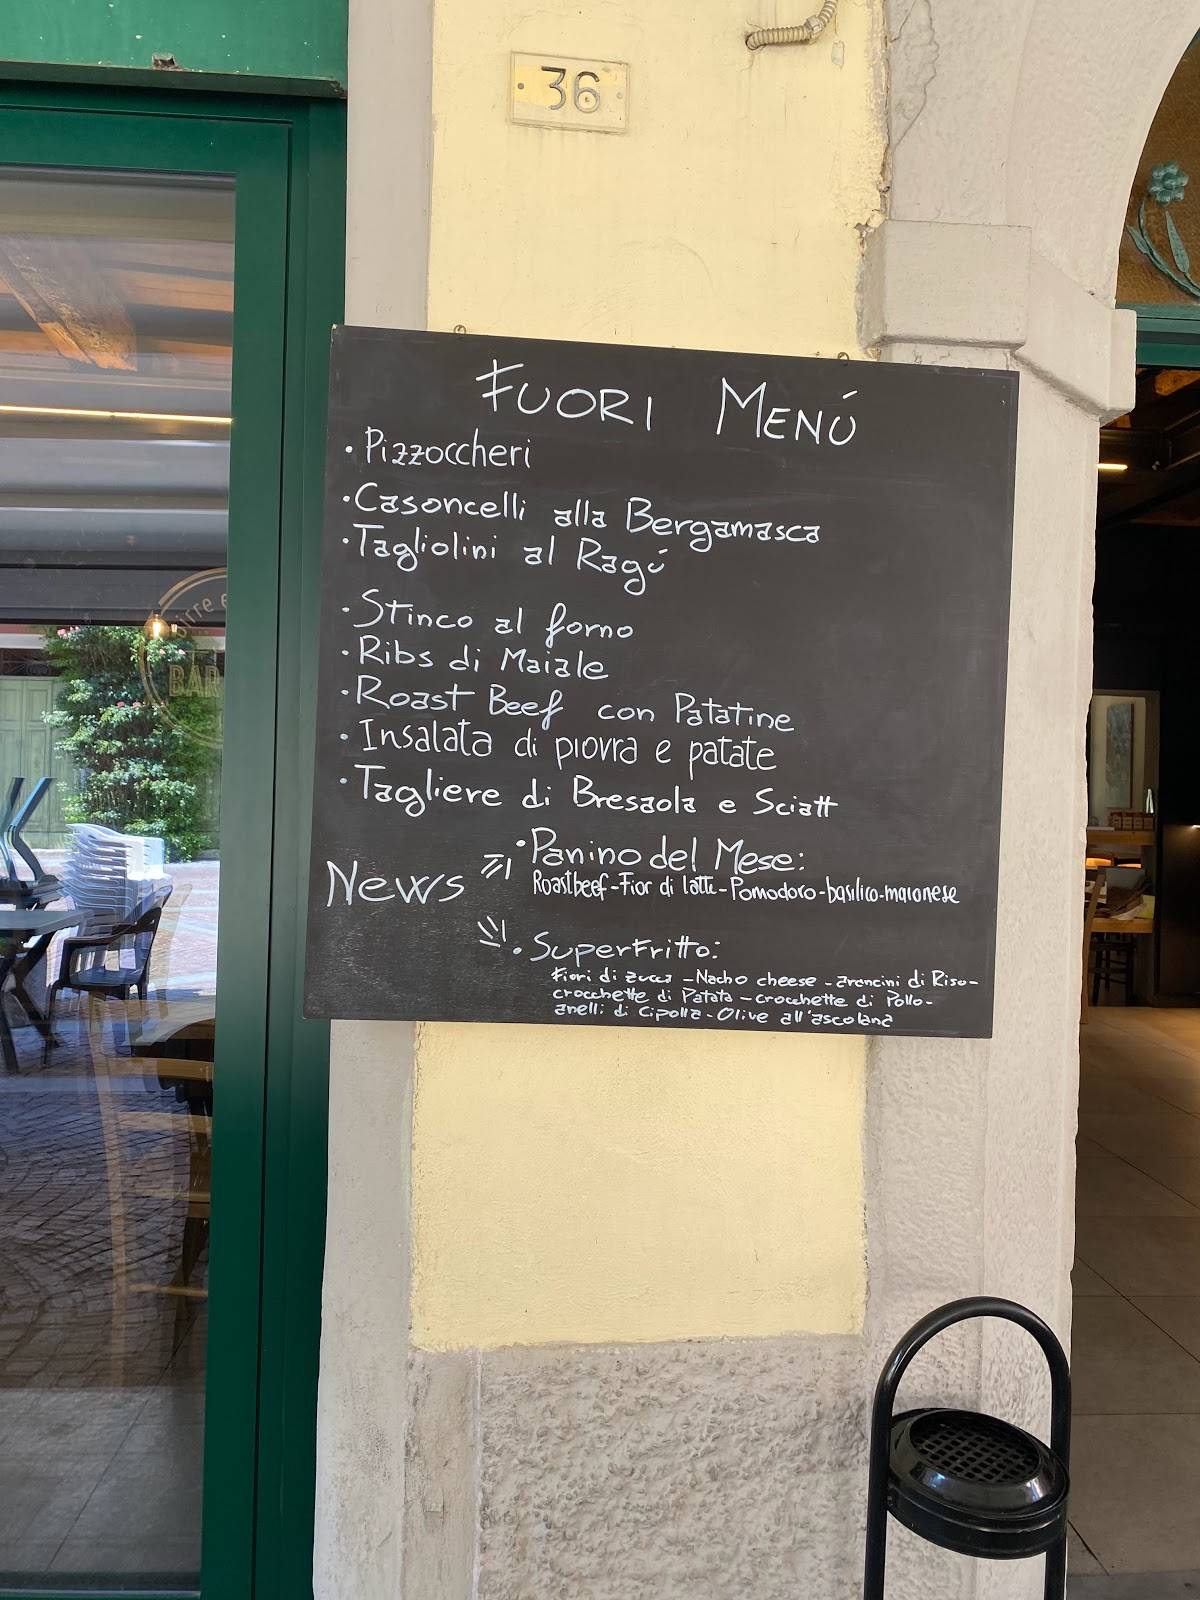 36
FUORI MENÚ
• Pizzoccheri
• Casoncelli alla Bergamasca
• Tagliolini al Ragú
• Stinco al forno
• Ribs di Maiale
• Roast Beef con Patatine
• Insalata di piovra e patate
• Tagliere di Bresaola e Sciatt
News
• Panino del Mese:
Roastbeef-Fior di latte-Pomodoro-basilico-maionese
• SuperFritto:
Fiori di zucca -Nacho cheese -arancini di Riso-
crocchette di Patata -crocchette di Pollo-
anelli di Cipolla-Olive all'ascolana
BAR